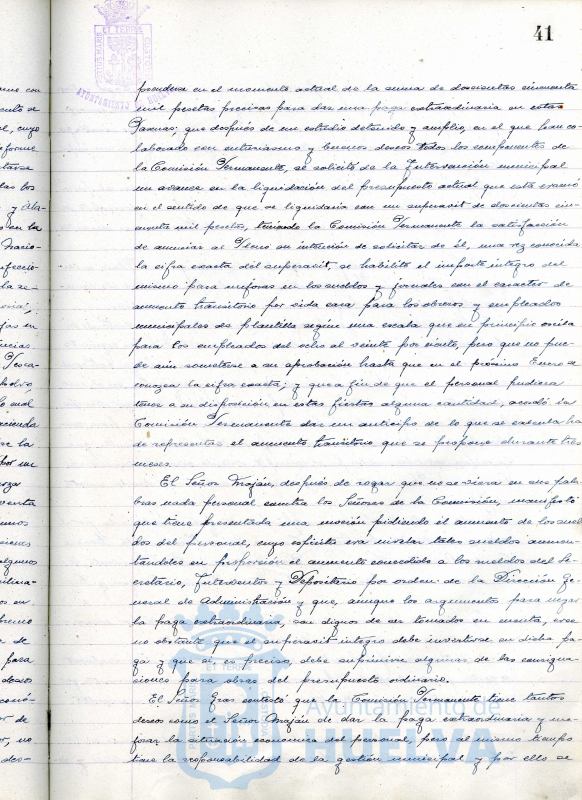 41
prenderse en el momento actual de la suma de doscientas cincuenta
mil pesetas precisas para dar una paga extraordinaria en estas
Pascuas; que después de un estudio detenido y amplio, en el que han co-
laborado con entusiasmo y buenos deseos todos los componentes de
la Comisión Permanente, se solicitó de la Intervención municipal
un avance en la liquidación del presupuesto actual que está examó
en el sentido de que se liquidaría con un superavit de doscientas cin-
cuenta mil pesetas, teniendo la Comisión Permanente la satisfacción
de anunciar al Pleno su intención de solicitar de él, una vez conocida
la cifra exacta del superavit, se habilite el importe íntegro del
mismo para mejoras en los sueldos y jornales con el caracter de
aumento transitorio por vida cara para los obreros y empleados
municipales de plantilla según una escala que en principio oscila
para los empleados del ocho al veinte por ciento, pero que no pue-
de aún someterse a su aprobación hasta que en el próximo Enero se
conozca la cifra exacta; y que a fin de que el personal pudiera
tener a su disposición en estas fiestas alguna cantidad, acordó la
Comisión Permanente dar un anticipo de lo que se
de representar el aumento transitorio que se propone durante tres
meses.
El Señor Maján, después de rogar que no se viera en sus pala-
bras nada personal contra los Señores de la Comisión, manifestó
que tiene presentada una moción pidiendo el aumento de los suel-
dos del personal, cuyo espíritu era nivelar tales sueldos aumen-
tandoles en proporción al aumento concedido a los sueldos del Se-
cretario, Interventor y Depositario por orden de la Dirección Ge-
neral de Administración y que, aunque los argumentos para negar
la paga extraordinaria, son dignos de ser tomados en cuenta, cree
no obstante que el superavit íntegro debe invertirse en dicha pa-
ga y que si es preciso, debe suprimirse algunas de las consigna-
ciones para obras del presupuesto ordinario.
El Señor Gras contestó que la Comisión Permanente tiene tantos
deseos como el Señor Maján de dar la paga extraordinaria y me-
jorar la situación económica del personal, pero al mismo tiempo
tiene la responsabilidad de la gestión municipal y por ello se
Ayuntamiento de
HUELVA